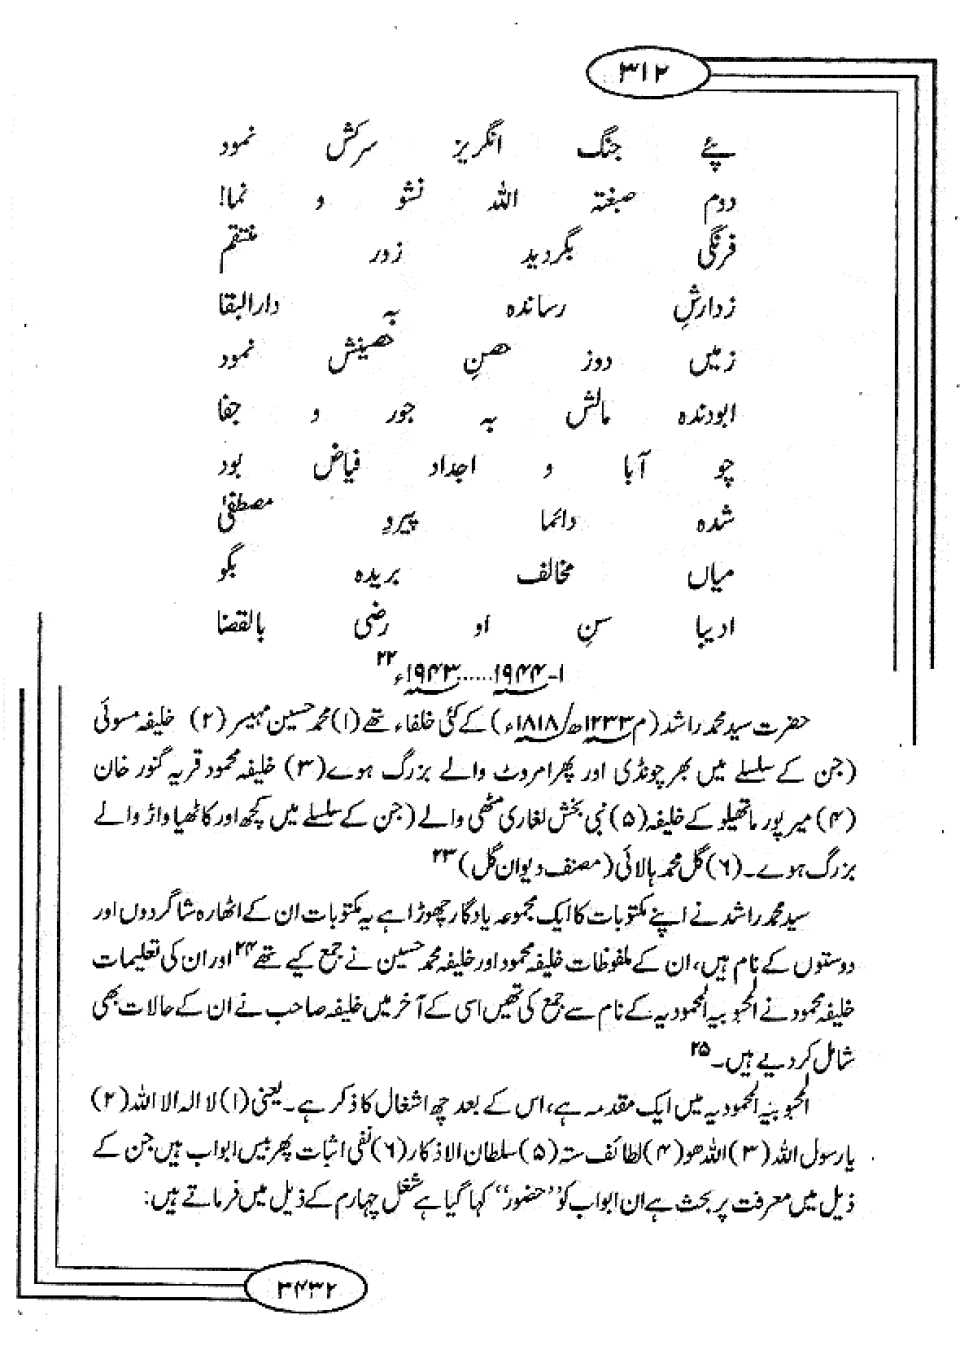 ۳۱۲
پئے جنگ انگریز سرکش نمود
دوم صبغتہ اللہ نشو و نما!
فرنگی بگردید زور منتقم
زدارشِ رساندہ بہ دارالبقا
زمیں دوز حصنِ حصینش نمود
ابودندہ مالش بہ جور و جفا
چو آبا و اجداد فیاض بود
شدہ دائما پیروِ مصطفیٰ
میاں مخالف بریدہ بگو
ادیبا سنِ او رضی بالقضا
۱-۱۹۴۴......۱۹۴۳ء ۲۲
حضرت سید محمد راشد (م ۱۲۳۳ھ/۱۸۱۸ء) کے کئی خلفاء تھے (۱) محمد حسین مہیسر (۲) خلیفہ مسوئی
(جن کے سلسلے میں بھرچونڈی اور پھر امروٹ والے بزرگ ہوے (۳) خلیفہ محمود قریہ گنور خان
(۴) میر پور ماتھیلو کے خلیفہ (۵) نبی بخش لغاری مٹھی والے (جن کے سلسلے میں کچھ اور کاٹھیاواڑ والے
بزرگ ہوے۔ (۶) گل محمد ہالائی (مصنف دیوان گل) ۲۳
سید محمد راشد نے اپنے مکتوبات کا ایک مجموعہ یادگار چھوڑا ہے یہ مکتوبات ان کے اٹھارہ شاگردوں اور
دوستوں کے نام ہیں، ان کے ملفوظات خلیفہ محمود اور خلیفہ محمد حسین نے جمع کیے تھے ۲۴ اور ان کی تعلیمات
خلیفہ محمود نے المحبوبیہ المحمودیہ کے نام سے جمع کی تھیں اسی کے آخر میں خلیفہ صاحب نے ان کے حالات بھی
شامل کر دیے ہیں۔ ۲۵
المحبوبیہ المحمودیہ میں ایک مقدمہ ہے، اس کے بعد چھ اشغال کا ذکر ہے۔ یعنی (۱) لا الہ الا اللہ (۲)
یا رسول اللہ (۳) اللہ ھو (۴) لطائف ستہ (۵) سلطان الاذکار (۶) نفی اثبات پھر بیس ابواب ہیں جن کے
ذیل میں معرفت پر بحث ہے ان ابواب کو ”حضور“ کہا گیا ہے شغل چہارم کے ذیل میں فرماتے ہیں:
۳۴۳۲